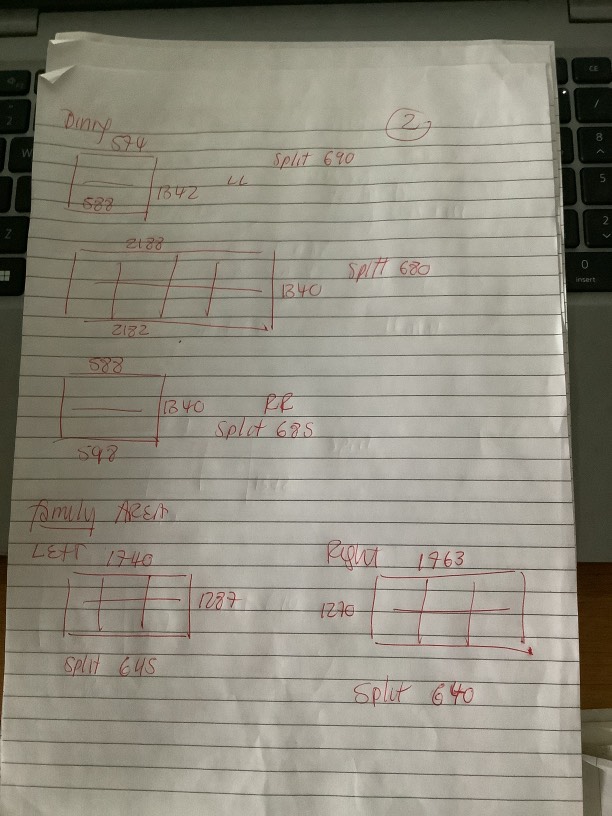 Dining
2
574
Split 690
1342
LL
588
2188
Split 680
1340
2182
588
1340
RR
Split 685
598
Family AREA
LEFT
1740
Right
1763
1287
1270
Split 645
Split 640